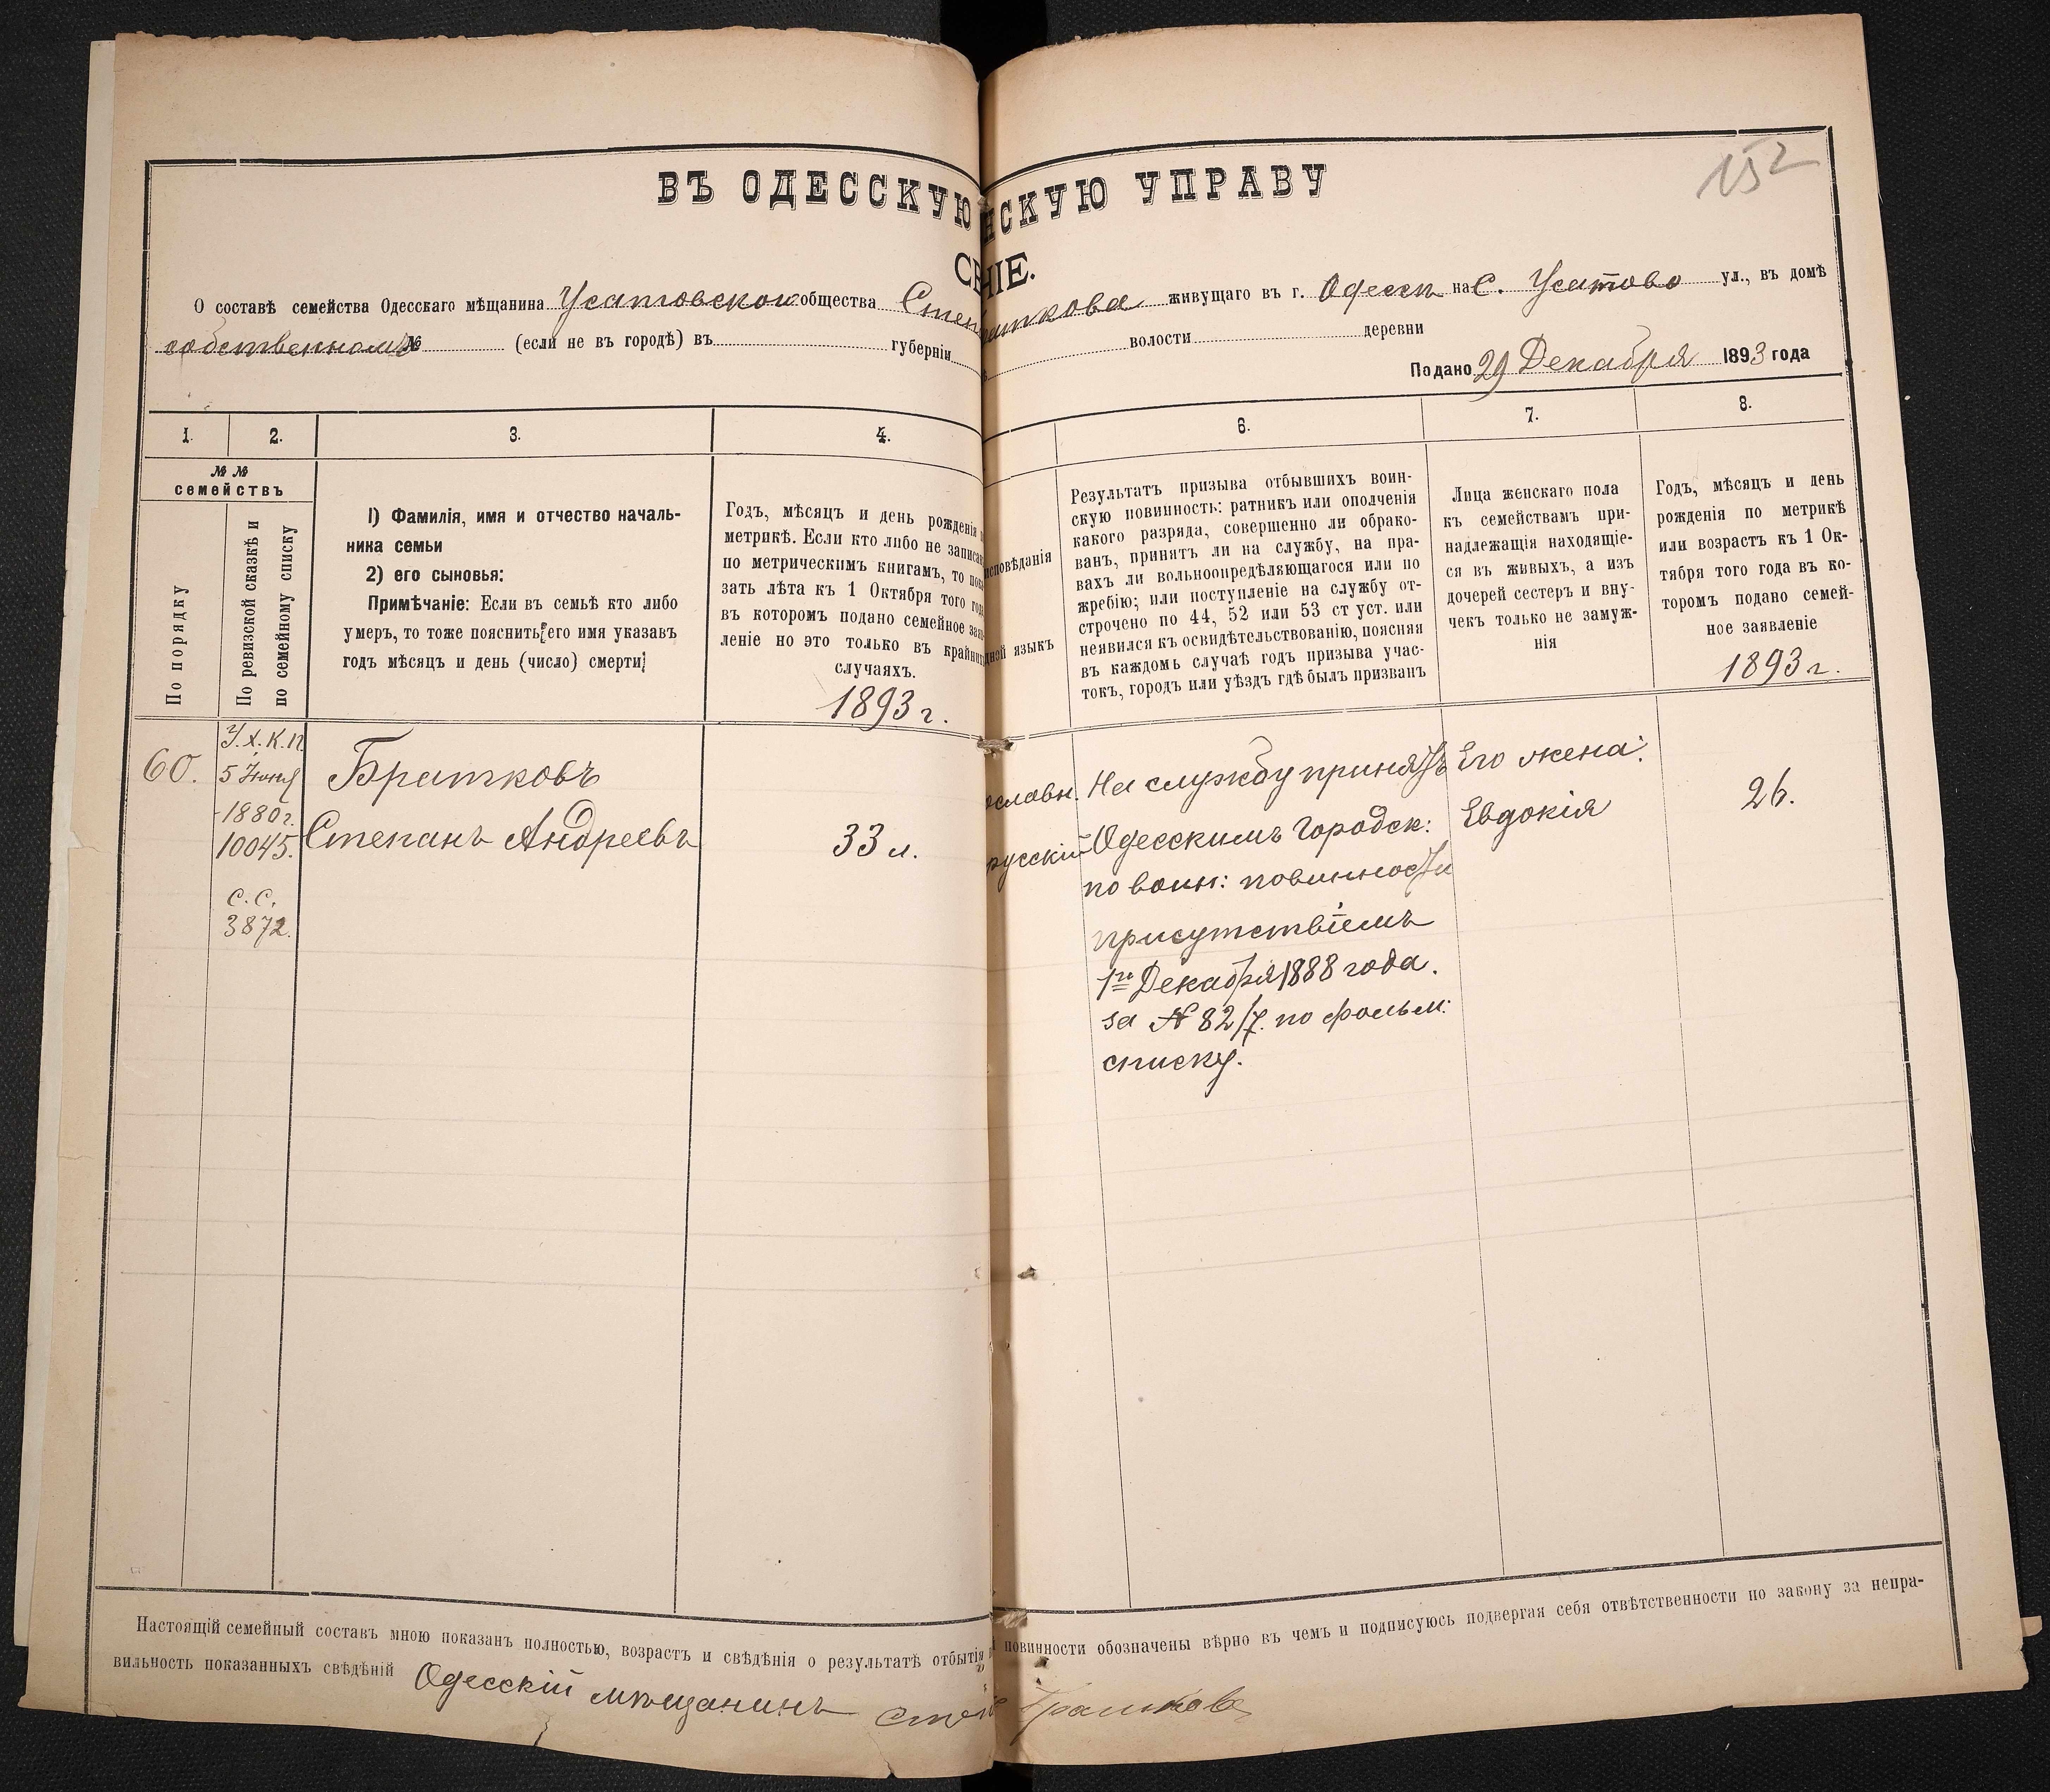 152
ВЪ ОДЕССКУЮ НСКУЮ УПРАВУ
НІЕ.
О составѣ семейства Одесскаго мѣщанина Усатовского общества Степ аткова живущаго въ г. Одессѣ на С. Усатово ул., въ домѣ
собственномъ № (если не въ городѣ) въ губерніи волости деревни
Подано 29 Декабря 1893 года
1. 2. 3. 4. 6. 7. 8.
№ №
семействъ
По порядку
По ревизской сказкѣ и
по семейному списку
1) Фамилія, имя и отчество началь-
ника семьи
2) его сыновья:
Примѣчаніе: Если въ семьѣ кто либо
умеръ, то тоже пояснить его имя указавъ
годъ мѣсяцъ и день (число) смерти
Годъ, мѣсяцъ и день рожденія
метрикѣ. Если кто либо не записа
по метрическимъ книгамъ, то пока
зать лѣта къ 1 Октября того год
въ которомъ подано семейное зая
леніе но это только въ крайних
случаяхъ.
1893 г.
исповѣданія
дной языкъ
Результатъ призыва отбывшихъ воин-
скую повинность: ратникъ или ополченія
какого разряда, совершенно ли обрако-
ванъ, принятъ ли на службу, на пра-
вахъ ли вольноопредѣляющагося или по
жребію; или поступленіе на службу от-
строчено по 44, 52 или 53 ст уст. или
неявился къ освидѣтельствованію, поясняя
въ каждомъ случаѣ годъ призыва учас-
токъ, городъ или уѣздъ гдѣ былъ призванъ
Лица женскаго пола
къ семействамъ при-
надлежащія находящіе-
ся въ живыхъ, а изъ
дочерей сестеръ и вну-
чекъ только не замуж-
нія
Годъ, мѣсяцъ и день
рожденія по метрикѣ
или возрастъ къ 1 Ок-
тября того года въ ко-
торомъ подано семей-
ное заявленіе
1893 г.
60.
У.Х.К.П.
5 Июня
1880 г.
10045.
С.С.
3872.
Братковъ
Степанъ Андреевъ
33 л.
ославн.
русскій
На службу принятъ
Одесскимъ Городск:
по воин: повинности
присутствіемъ
1го Декабря 1888 года.
за № 82/7. по
списку.
Его жена:
Евдокія
26.
Настоящій семейный составъ мною показанъ полностью, возрастъ и свѣдѣнія о результатѣ отбытія повинности обозначены вѣрно въ чемъ и подписуюсь подвергая себя отвѣтственности по закону за непра-
вильность показанныхъ свѣдѣній Одесскій мѣщанинъ